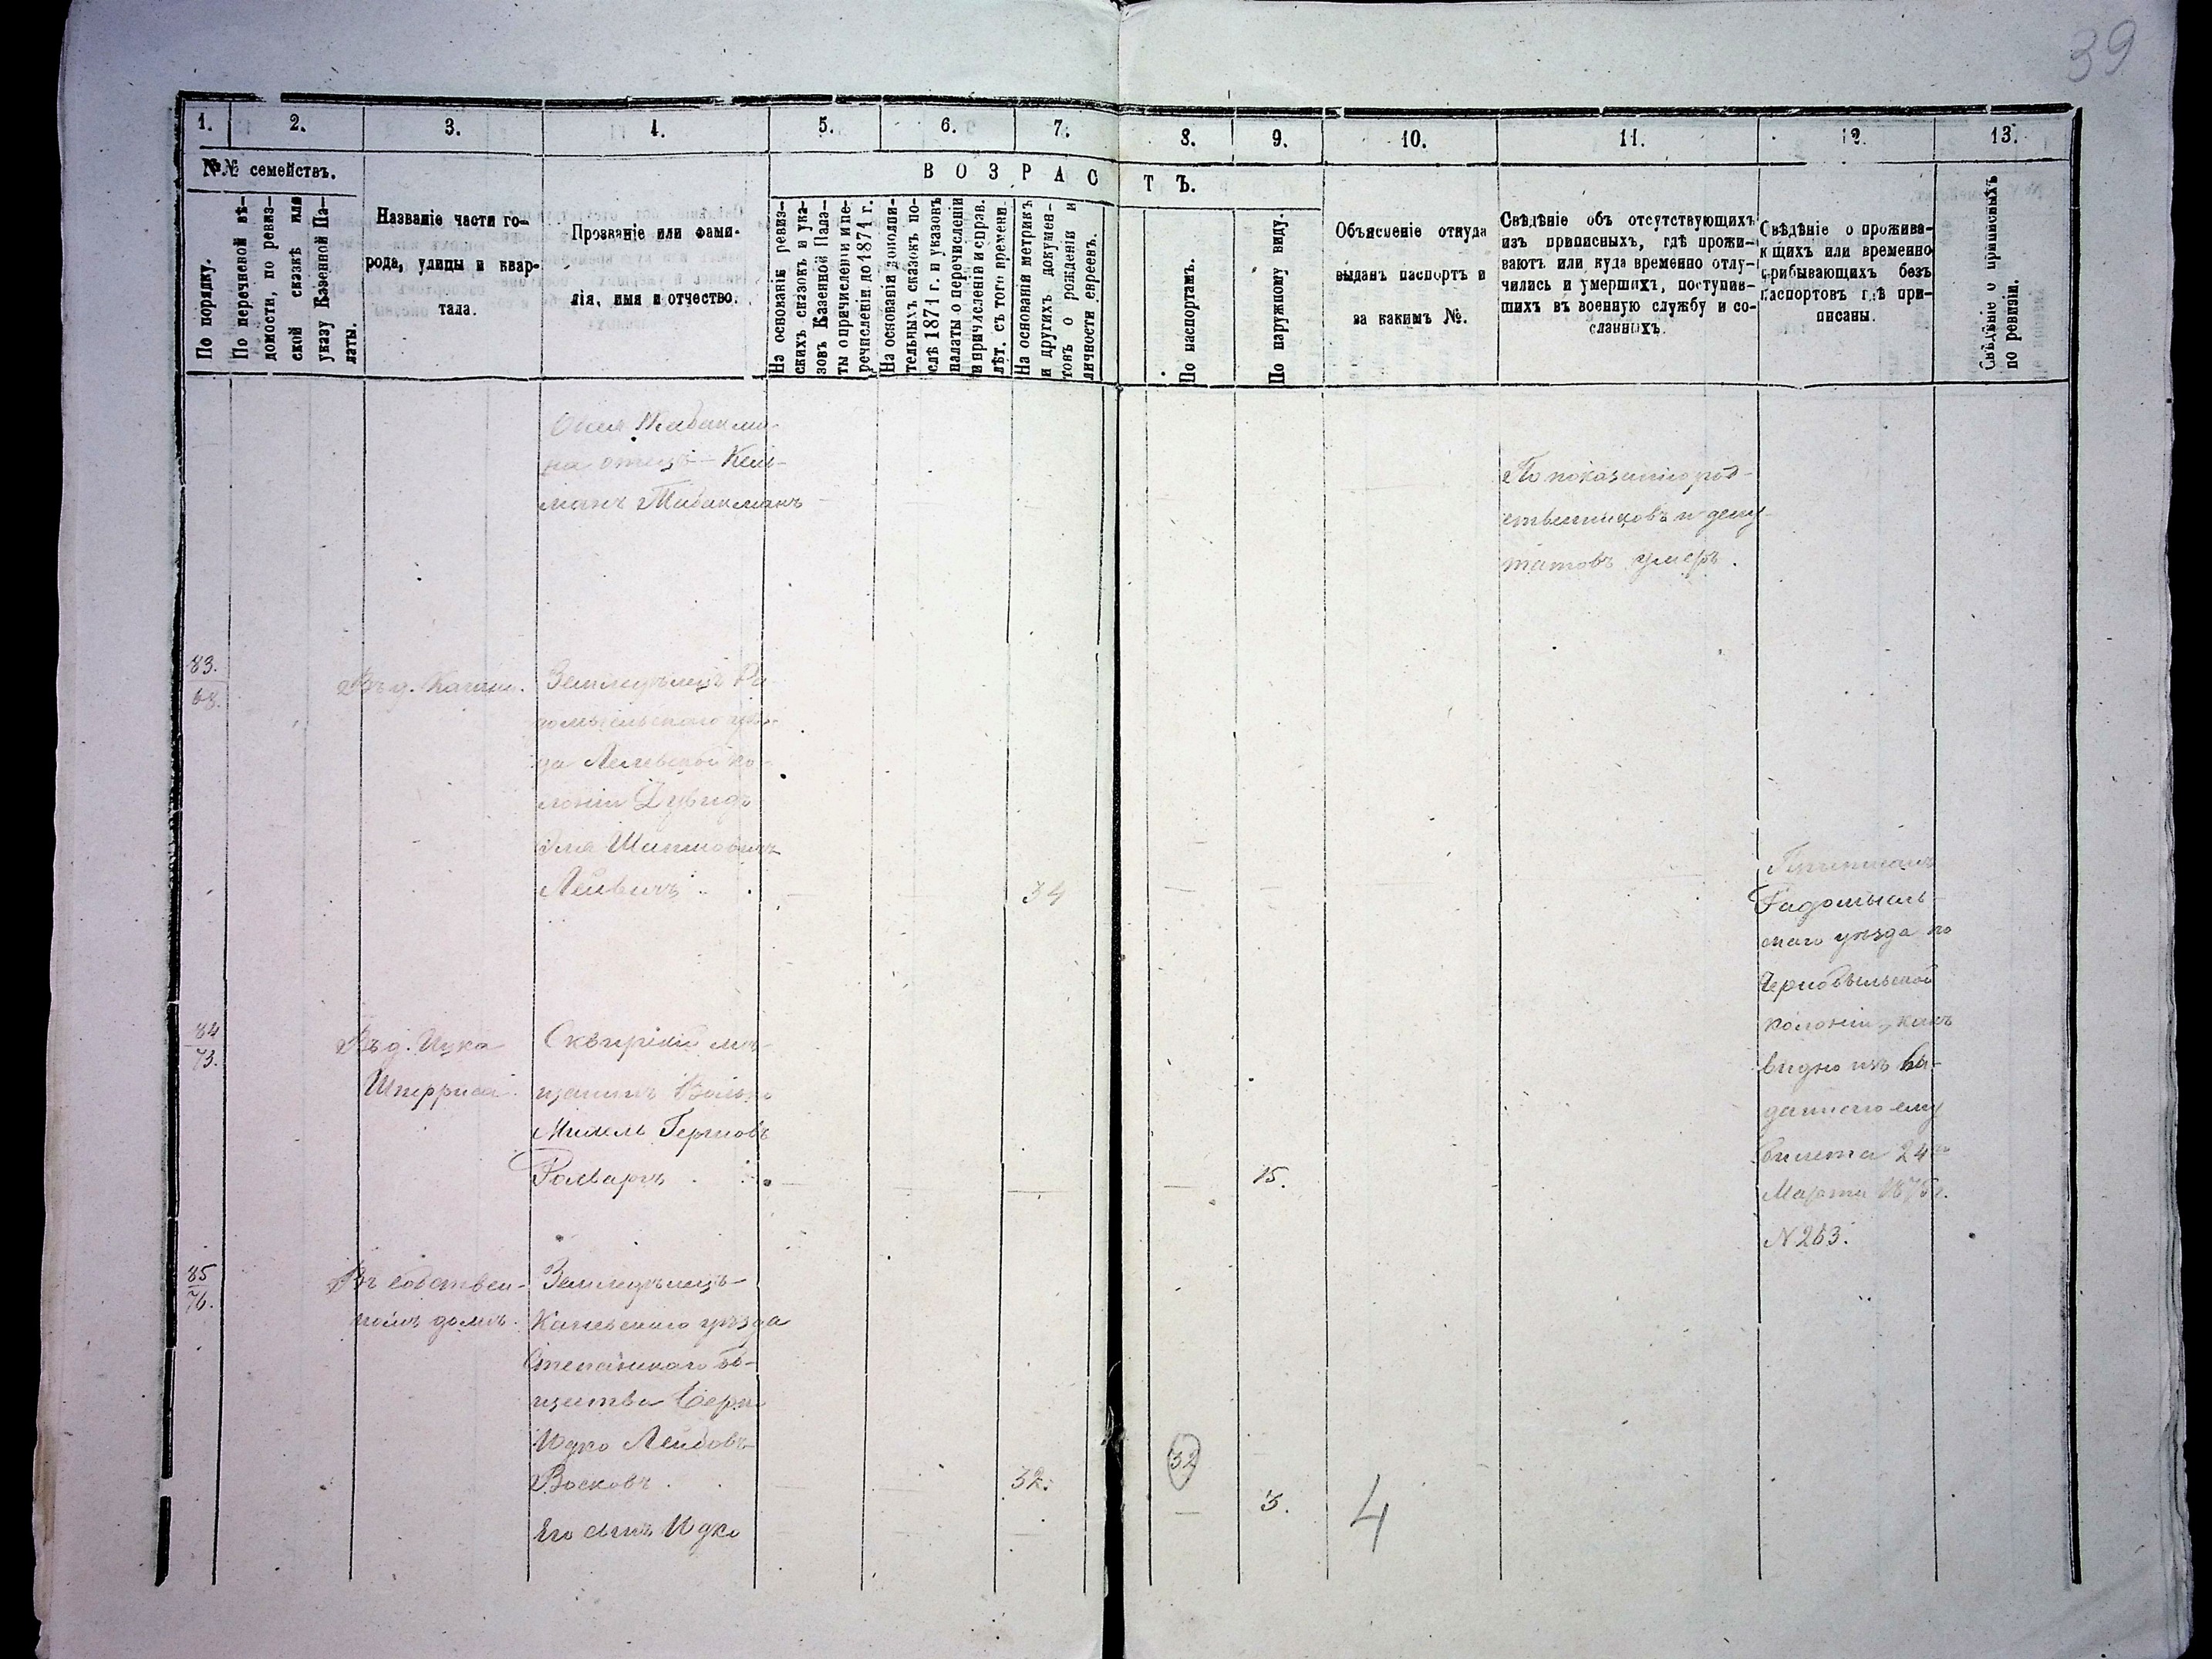 39
1. 2. 3. 4. 5. 6. 7. 8. 9. 10. 11. 12. 13.
№№ семействъ.
ВОЗРАСТЪ.
По порядку.
По перечневой вѣ-
домости, по ревиз-
ской сказкѣ или
указу Казенной Па-
латы.
Названіе части го-
рода, улицы и квар-
тала.
Прозваніе или фами-
лія, имя и отчество.
На основаніи ревиз-
скихъ сказокъ и ука-
зовъ Казенной Пала-
ты о причисленіи и пе-
речисленіи до 1871 г.
На основаніи дополни-
тельныхъ сказокъ по-
слѣ 1871 г. и указовъ
палаты о перечисленіи
и причисленіи и справ.
лѣт. съ того времени.
На основаніи метрикъ
и другихъ докумен-
товъ о рожденіи и
личности евреевъ.
По паспортамъ.
По наружному виду.
Объясненіе откуда
выданъ паспортъ и
за какимъ №.
Свѣдѣніе объ отсутствующихъ
изъ приписныхъ, гдѣ прожи-
ваютъ или куда временно отлу-
чились и умершихъ, поступив-
шихъ въ военную службу и со-
сланныхъ.
Свѣдѣніе о прожива-
ющихъ или временно
прибывающихъ безъ
паспортовъ гдѣ при-
писаны.
Свѣдѣніе о приписныхъ
по ревизіи.
Табакма-
на отецъ - Кель-
манъ Табакманъ
По показанію род-
ственниковъ и депу-
татовъ умеръ.
83.
68.
Въ д.
Земледѣлецъ Ра-
домысльскаго уѣз-
да
ко-
лоніи Дувидъ
34
Приписанъ
Радомысль-
скаго уѣзда по
Чернобыльской
колоніи, какъ
видно изъ вы-
даннаго ему
билета 24го
Марта 1875 г.
N 263.
84
73.
Въ д. Ицка
Сквирскій мѣ-
щанинъ Волько
Михель Гершовъ
15.
85
76.
Въ собствен-
номъ домѣ.
Земледѣлецъ
Каневскаго уѣзда
Степанскаго об-
щества Беръ
Идко Лейбовъ
Восковъ . .
52.
32
Его сынъ Идко
3.
4